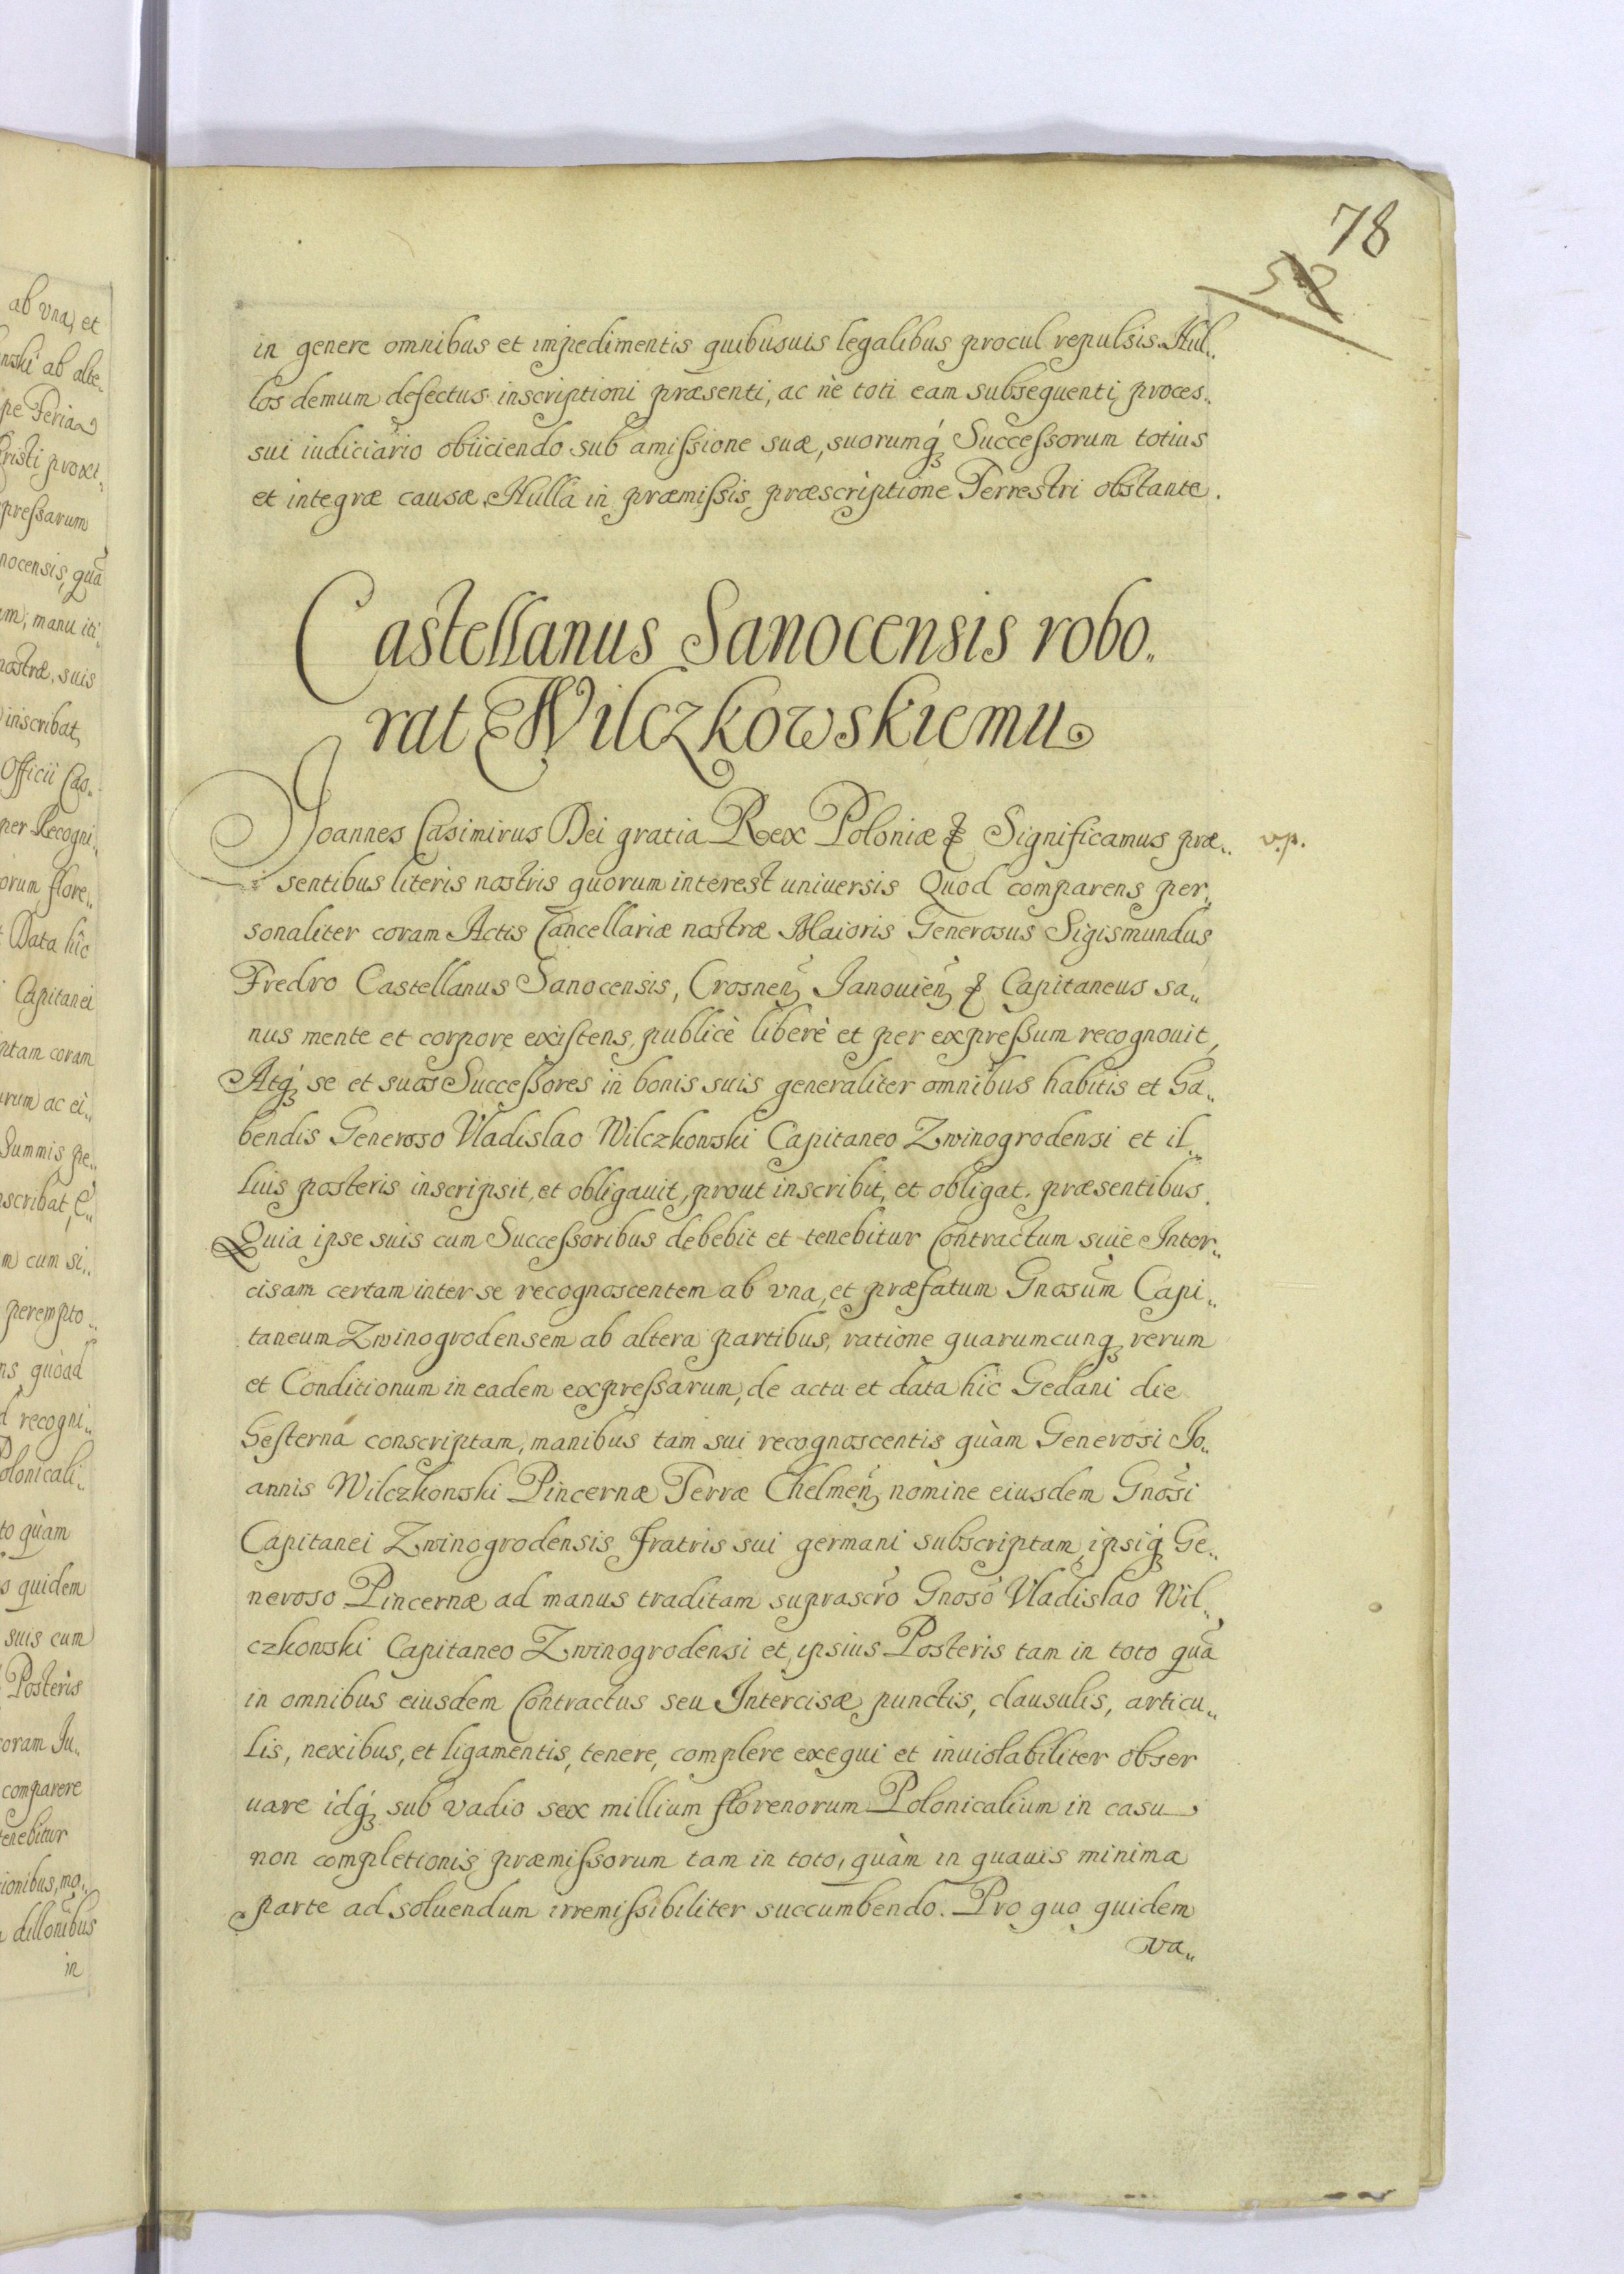 78
58
in genere omnibus et impedimentis quibusuis legalibus procul repulsis. Nul„
los demum defectus inscriptioni præsenti, ac nè toti eam subsequenti proces„
sui iudiciario obiiciendo sub amissione suæ, suorumq́ Successorum totius
et integræ causæ. Nulla in præmissis præscriptione Terrestri obstante.
Castellanus Sanocensis robo„
rat Wilczkowskiemu
Joannes Casimirus Dei gratia Rex Poloniæ & Significamus præ„ v.p.
sentibus literis nostris quorum interest uniuersis Quod comparens per„
sonaliter coram Actis Cancellariæ nostræ Maioris Generosus Sigismundus
Fredro Castellanus Sanocensis, Crosnen̄ Janouien̄ & Capitaneus sa„
nus mente et corpore existens, publicè liberè et per expressum recognouit,
Atq́ se et suos Successores in bonis suis generaliter omnibus habitis et ha„
bendis Generoso Vladislao Wilczkowski Capitaneo Zwinogrodensi et il„
lius posteris inscripsit, et obligauit, prout inscribit, et obligat præsentibus.
Quia ipse suis cum Successoribus debebit et tenebitur Contractum siue Inter„
cisam certam inter se recognoscentem ab vna, et præfatum Gnosum̄ Capi„
taneum Zwinogrodensem ab altera partibus, ratione quarumcunq rerum
et Conditionum in eadem expressarum, de actu et data hic Gedani die
hesterna conscriptam, manibus tam sui recognoscentis quàm Generosi Jo„
annis Wilczkowski Pincernæ Terræ Chelmen̄ nomine eiusdem Gnos̄i
Capitanei Zwinogrodensis fratris sui germani subscriptam, ipsiq́ Ge„
neroso Pincernæ ad manus traditam suprascr̄o Gnoso̅ Vladislao Wil„
czkowski Capitaneo Zwinogrodensi et ipsius Posteris tam in toto quā
in omnibus eiusdem Contractus seu Intercisæ punctis, clausulis, articu„
lis, nexibus, et ligamentis, tenere, complere exequi et inuiolabiliter obser
uare idq́ sub vadio sex millium florenorum Polonicalium in casu
non completionis præmissorum tam in toto, quàm in quauis minima
parte ad soluendum irremissibiliter succumbendo. Pro quo quidem
va„
ab vna, et
pe Feria
Data hîc
Capitanei
inscribat,
suis cum
Posteris
comparere
in